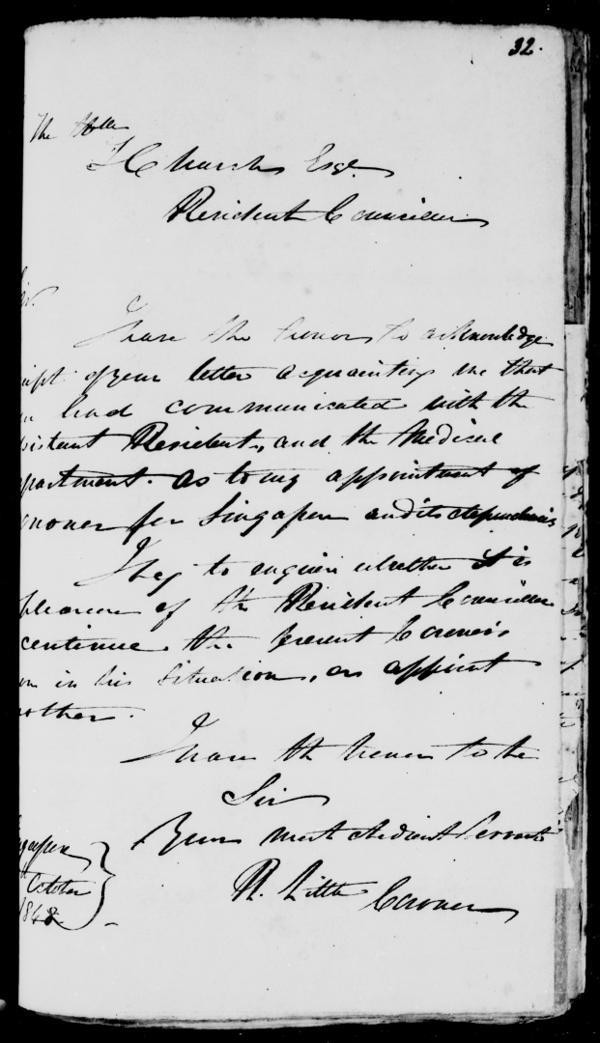 32.
The Hble
T Church Esqr.
Resident Councillor
Sir.
I have the honor to acknowledge
eipt of your letter acquainting me that
u had communicated with the
sistant Resident, and the Medical
partment. as to my appointment of
oroner for Singapore and its dependencies
I beg to enquire whether it is
pleasure of the Resident Councillor
continue the present Coroner's
in his situation, or appoint
nother.
I have the honor to be
Sir
Your most obedient Servant
R. Little Coroner
ngapore
October
1848.